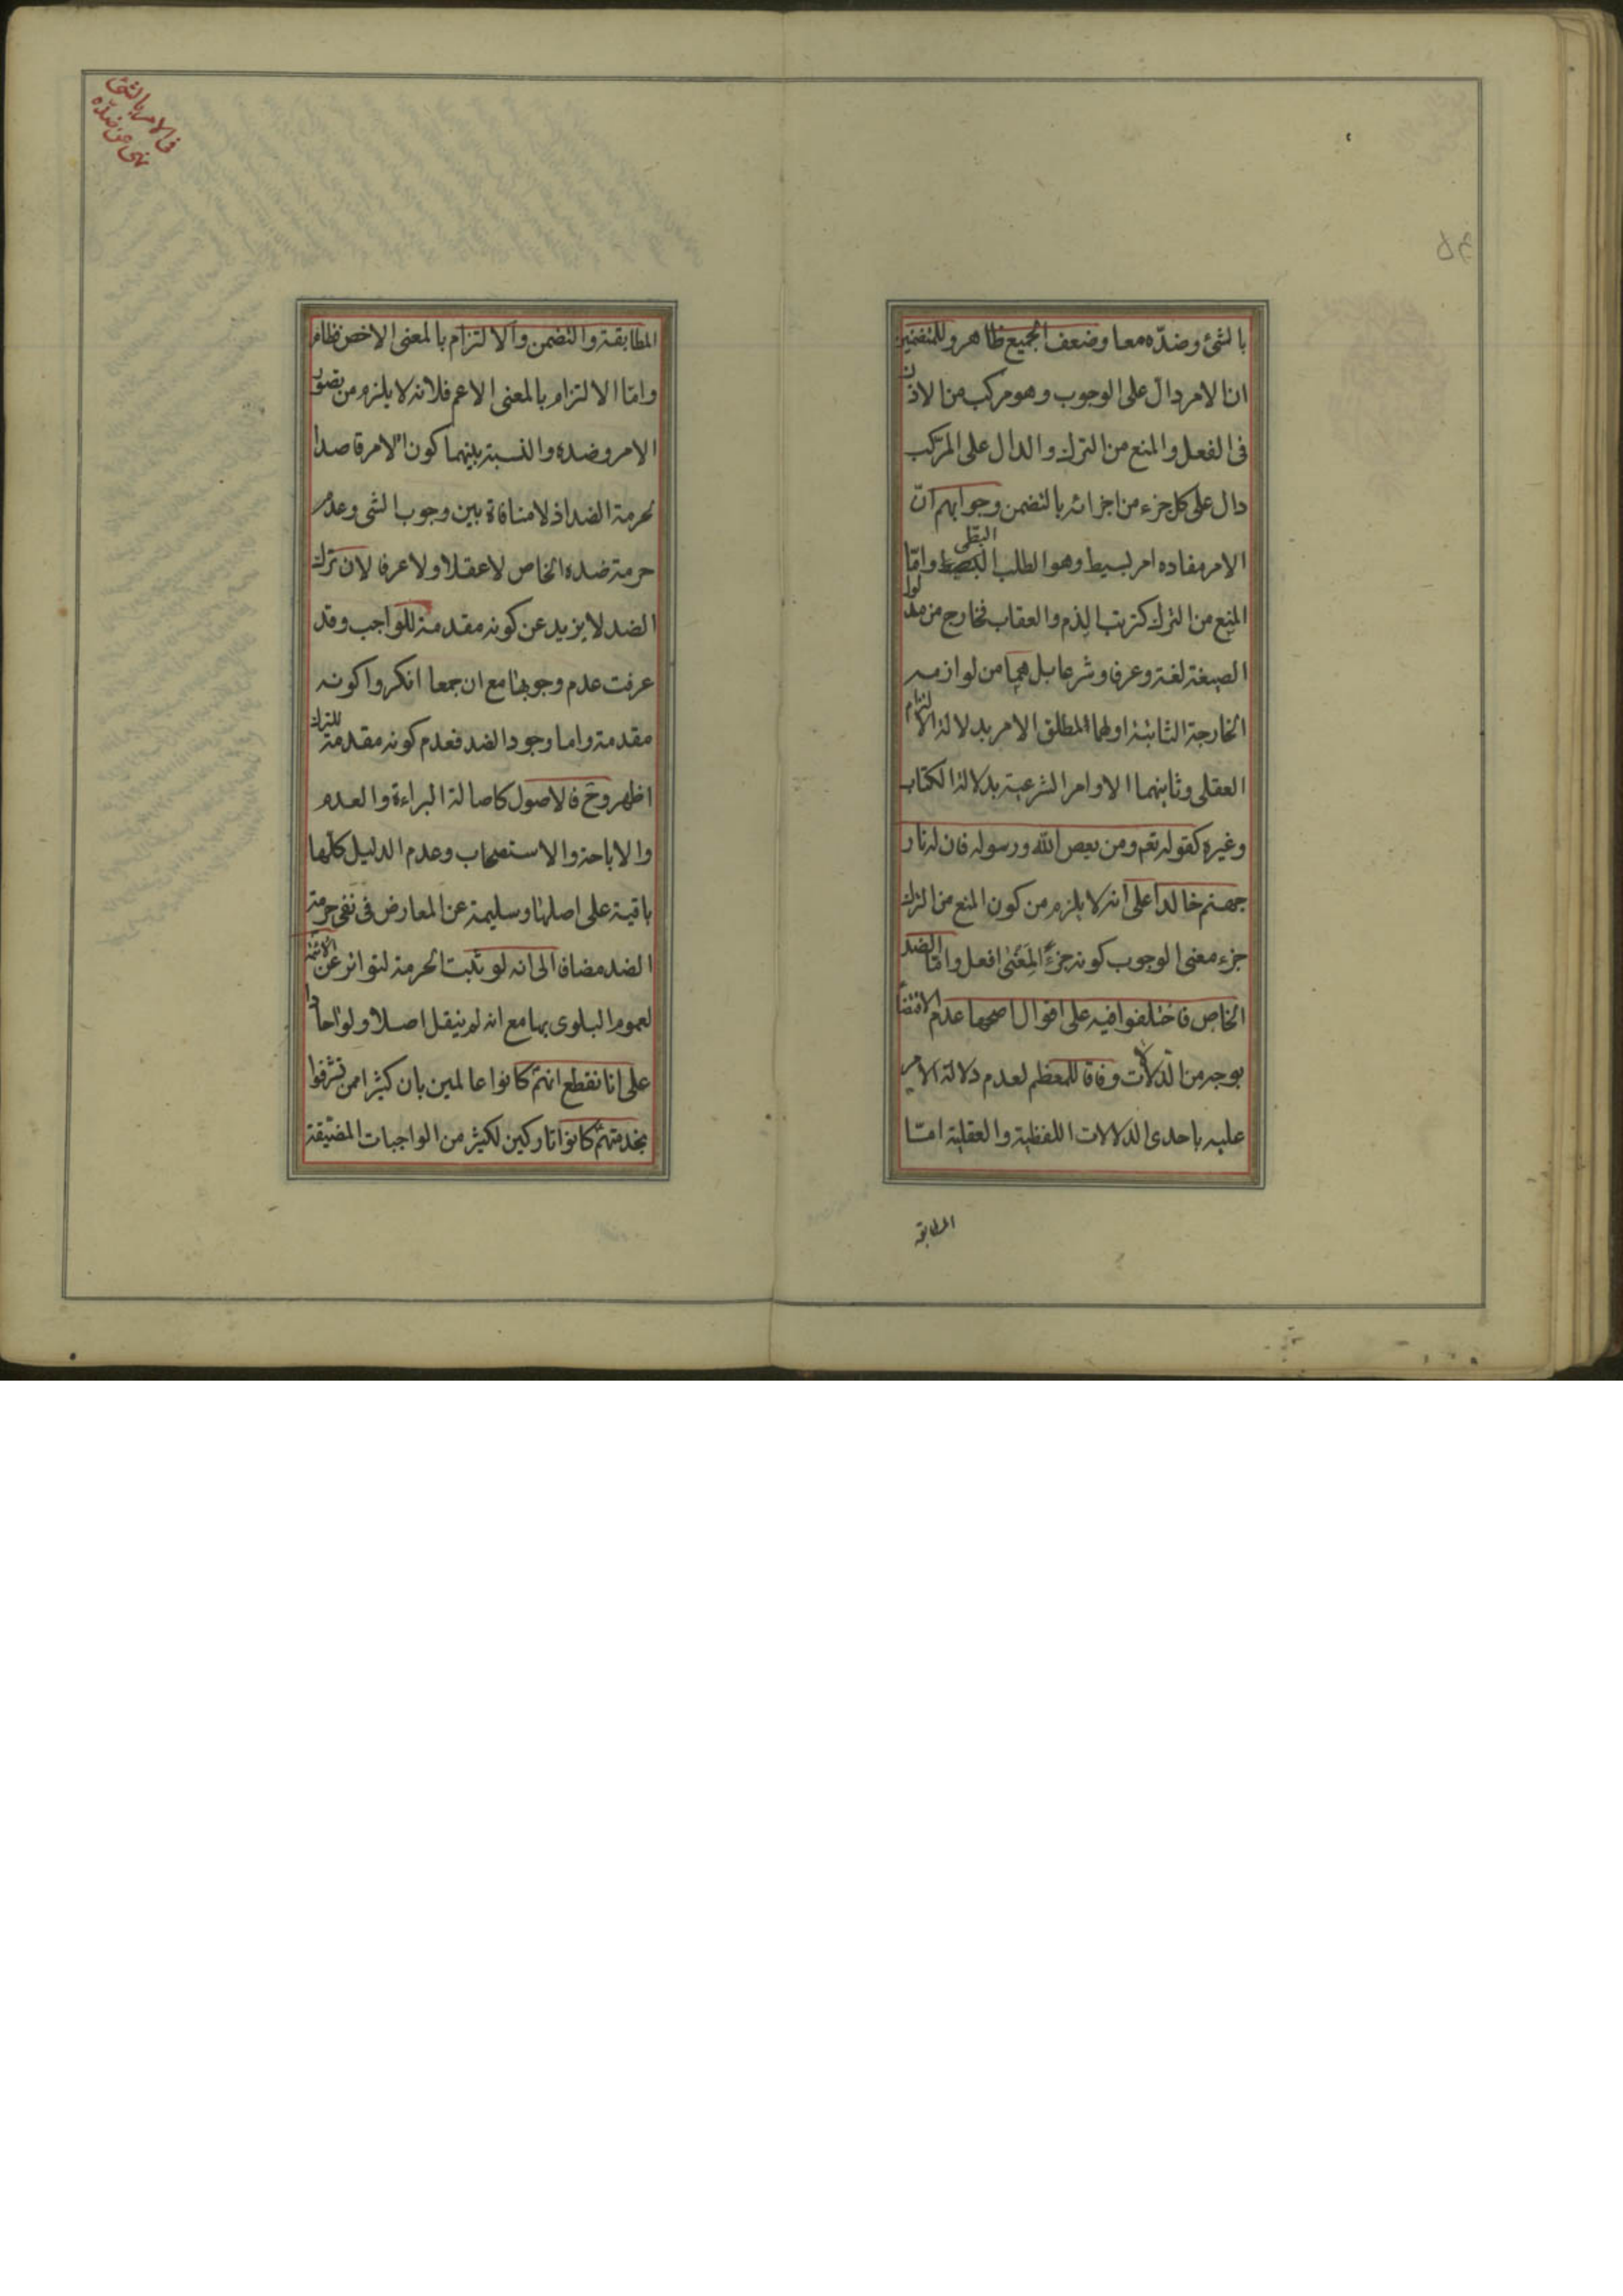 بالشئ وضدّه معا وضعف الجميع ظاهر وللمتضمنين
ان الامر دال على الوجوب وهو مركب من الاذن
فى الفعل والمنع من الترك والدال على المركب
دال على كل جزء من اجزائه بالتضمن وجوابهم انّ
الامر مفاده امر بسيط وهو الطلب وامّا
المنع من الترك كترتب الذم والعقاب فخارج من مدلول
الصيغة لغة وعرفا وشرعا بل هما من لوازمه
الخارجة الثابتة اولهما لمطلق الامر بدلالة الالتزام
العقلى وثانيهما الاوامر الشرعية بدلالة الكتاب
وغيره كقوله تعم ومن يعص الله ورسوله فان له نار
جهنم خالدا على انه لا يلزم من كون المنع من الترك
جزء معنى الوجوب كونه جزءً لمعنى افعل وامّا الضد
الخاص فاختلفوا فيه على اقوال اصحها عدم الاقتضاء
بوجه من الدلالات وفاقا للمعظم لعدم دلالة الامر
عليه باحدى الدلالات اللفظية والعقلية امّا
المطابقة
فى الامر بالشئ
نهى عن ضدّه
المطابقة والتضمن والالتزام بالمعنى الاخص فظاهر
وامّا الالتزام بالمعنى الاعم فلانه لا يلزم من تصور
الامر وضده والنسبة بينهما كون الامر قاصدا
لحرمة الضد اذ لا منافاة بين وجوب الشى وعدم
حرمة ضده الخاص لا عقلا ولا عرفا لان ترك
الضد لا يزيد عن كونه مقدمة للواجب وقد
عرفت عدم وجوبها مع ان جمعا انكروا كونه
مقدمة واما وجود الضد فعدم كونه مقدمة للترك
اظهر وح فالاصول كاصالة البراءة والعدم
والاباحة والاستصحاب وعدم الدليل كلّها
باقية على اصلها وسليمة عن المعارض فى نفى حرمة
الضد مضافا الى انه لو ثبت الحرمة لتواتر عن الائمة
لعموم البلوى بها مع انه لم ينقل اصلا ولو احادا
على انا نقطع انهم كانوا عالمين بان كثيرا ممن تشرفوا
بخدمتهم كانوا تاركين لكثير من الواجبات المضيقة